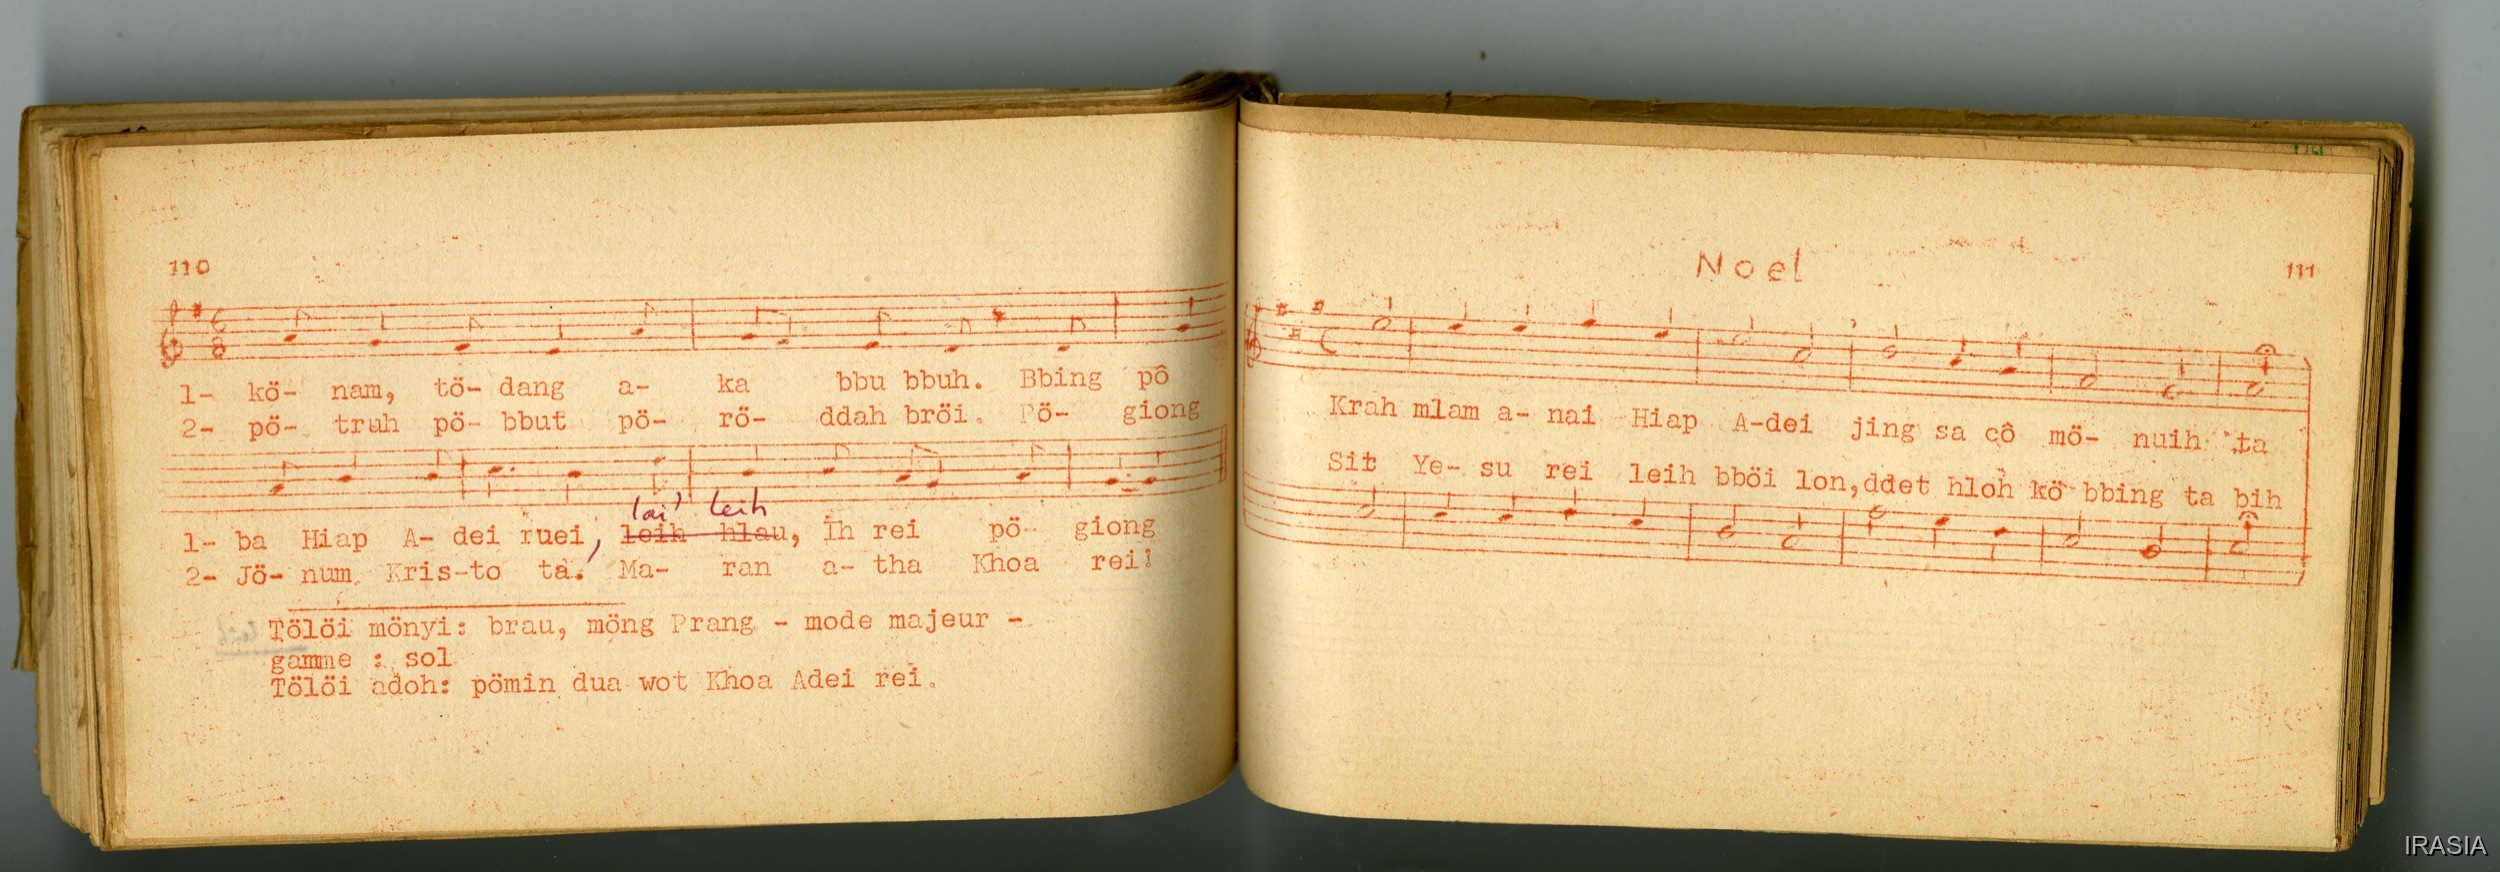 110
1- kö- nam, tö- dang a- ka bbu bbuh. Bbing pô
2- pö- truh pö- bbut pö- rö- ddah bröi. Pö- giong
lai' leih
1- ba Hiap A- dei ruei, leih hlau, Ih rei pö- giong
2- Jö- num Kris-to ta. Ma- ran a- tha Khoa rei!
Tölöi mönyi: brau, möng Prang - mode majeur -
gamme : sol
Tölöi adoh: pömin dua wot Khoa Adei rei.
Noel
111
Krah mlam a- nai Hiap A-dei jing sa cô mö- nuih ta
Sit Ye- su rei leih bböi lon,ddet hloh kö bbing ta bih
IRASIA